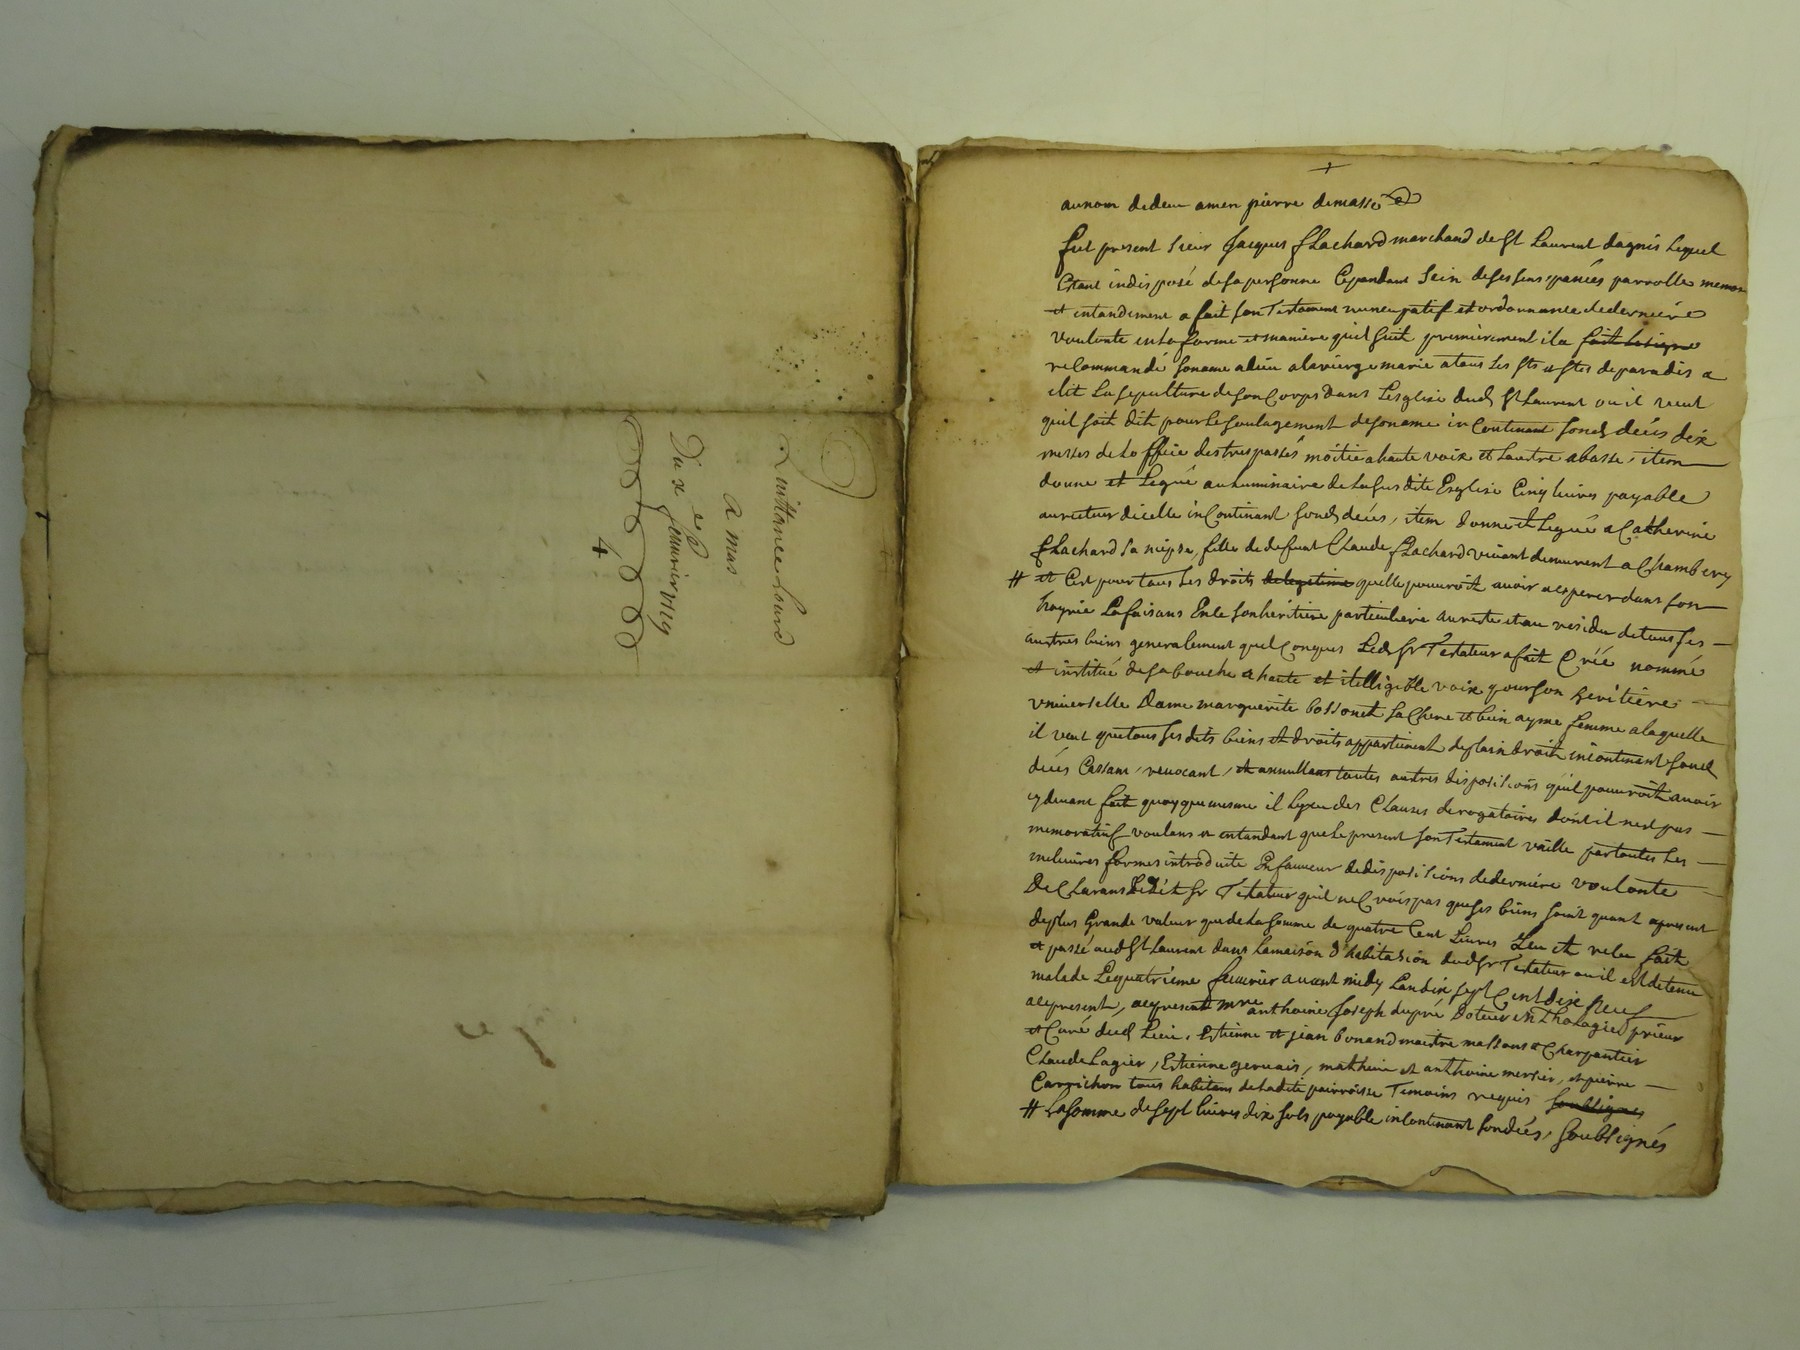 Quittance Louis
a mas
Du x e febvrier 1719
4
+
au nom de dieu amen pierre demasso
fut present sieur Jacques flachard marchand de st Laurent dagnis lequel
Estant indisposé de sa personne Cepandant sein de ses sens pances parrolle memoi
et entandement a fait son Testament nuncupatif et ordonnance de derniere
voulonté en la forme et maniere quil suit premierement il a fait le signe
reCommandé son ame a dieu a la vierge marie a tous les sts et stes de paradis a
elit La sepulture de son Corps dans Lesglise dud st Laurent ou il veut
quil soit dit pour Le soulagement de son ame inContinant sond deces dix
messes de Loffice des trespassés moitie a haute voix et Lautre a basse, item
donne et Legue au Luminaire de la susdite Esglise Cinq livres payable
au recteur dicelle inContinant sond deces, item donne et Legue a Catherine
flachard sa niepse, fille de defunt Claude flachard vivant demeurent a Chambery
# et Cest pour tous les droits de legitime quelle pouvroit avoir et esperer dans son
hoyrie La faisans En ce son heritiere particuliere au reste et au residu de tous ses
auttres biens generalement quelConques Led sr Testateur a fait Créé nommé
et institué de sa bouche a haute et itelligible voix pour son heritiere
universelle Dame marguerite bossonet sa Chere et bien ayme femme a laquelle
il veut que tous ses dits biens et droits appartienent de plain droit incontinent sond
deces Cassant, revocant, et annullans toutes autres disposisions quil pouvroit avoir
cy devant fait quoy que mesme il y eu des Clauses derogatoires dont il nest pas
memoratif voulans et entandant que Le present son Testament vaille par toutes Les
melieures formes introduite En faveur de disposisions de derniere voulonte
DeClarans Ledit sr Testateur quil ne Crois pas que ses biens soint quant a present
de plus Grande valeur que de La somme de quatre Cent Livres Leu et releu fait
et passé aud st Laurent dans La maison d'habitasion dud sr Testateur ou il est detenu
malade Le quatrieme feuvrier avant midy Lan dix sept Cent dix neuf
a epresent, a epresent mre anthoine Joseph dupré Doteur en Thologie prieur
et Curé dud Lieu, Estienne et jean bonand maistre massons et Charpantier
Claude Lagier, Estienne gervais, mathieu et anthoine mersier, et pierre
Carrichon tous habitans de La dite parroisse Temoins requis soubsignes
# La somme de sept livres dix sols payable incontinant son deces, soubsignés